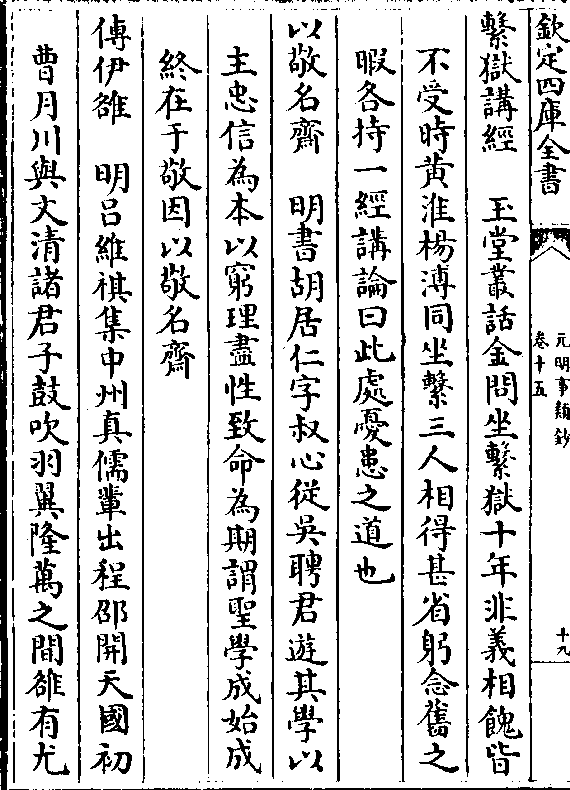 欽定四庫全書
元明事類鈔
卷十五
十九
繫獄講經　玉堂叢話金問坐繫獄十年非義相餽皆
不受時黄淮楊溥同坐繫三人相得甚省躬念舊之
暇各持一經講論曰此處憂患之道也
以敬名齋　明書胡居仁字叔心從吳聘君遊其學以
主忠信為本以窮理盡性致命為期謂聖學成始成
終在于敬因以敬名齋
傳伊雒　明吕維祺集中州真儒輩出程邵開天國初
曹月川與文清諸君子鼓吹羽翼隆萬之間雒有尤